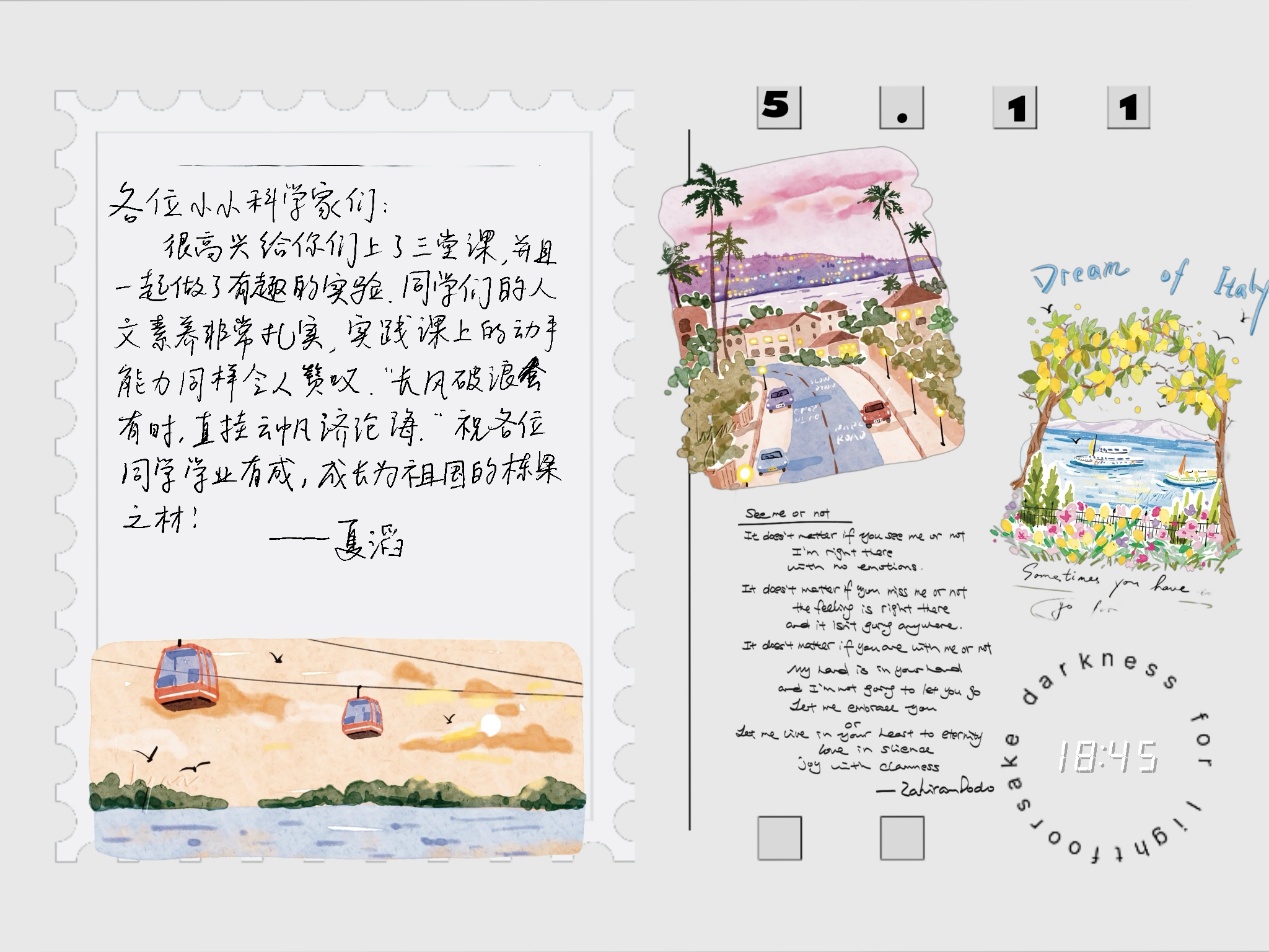 各位小小科学家们:
很高兴给你们上了三堂课,并且
一起做了有趣的实验.同学们的人
文素养非常扎实,实践课上的动手
能力同样令人赞叹."长风破浪会
有时,直挂云帆济沧海."祝各位
同学学业有成,成长为祖国的栋梁
之材!
——夏滔
5.11
Dream of Italy
Sometimes you have
go for
See me or not
It doesn't matter if you see me or not
I'm right there
with no emotions.
It doesn't matter if you miss me or not
the feeling is right there
and it isn't going anywhere.
It doesn't matter if you are with me or not
My hand is in your hand
and I'm not going to let you go
Let me embrace you
or
Let me live in your heart to eternity
love in silence
joy with clamness
—Zahiran Dodo
foorsake darkness for light
18:45